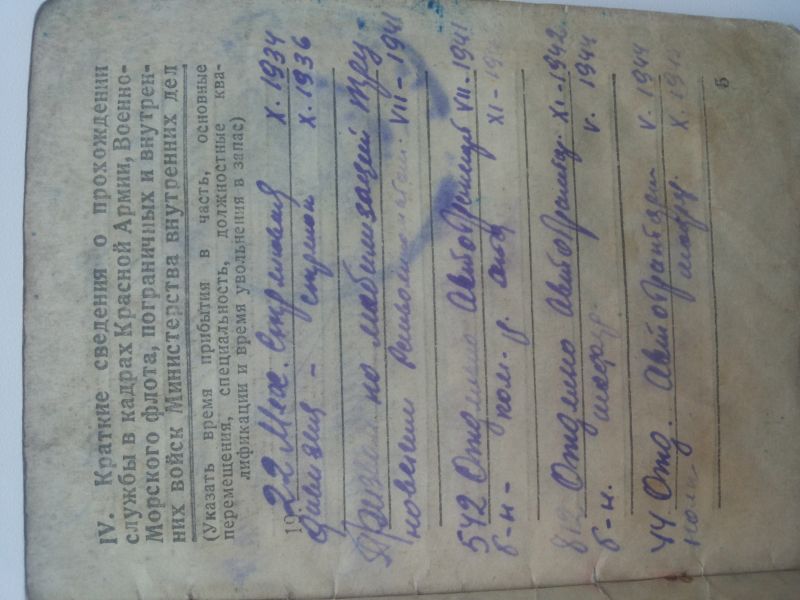 IV. Краткие сведения о прохождении
службы в кадрах Красной Армии, Военно-
Морского флота, пограничных и внутрен-
них войск Министерства внутренних дел
(Указать время прибытия в часть, основные
перемещения, специальность, должностные ква-
лификации и время увольнения в запас)
19 22 Мех. Стрелковая X. 1934
дивизия - стрелок X. 1936
Призван по мобилизации
VII - 1941
542 Отдельно VII. 1941
б-н - ком. XI - 19
Отдельно XI - 1942
б-н. шофер. V. 1944
44 Отд. V. 1944
полк шофер. X. 1945
5